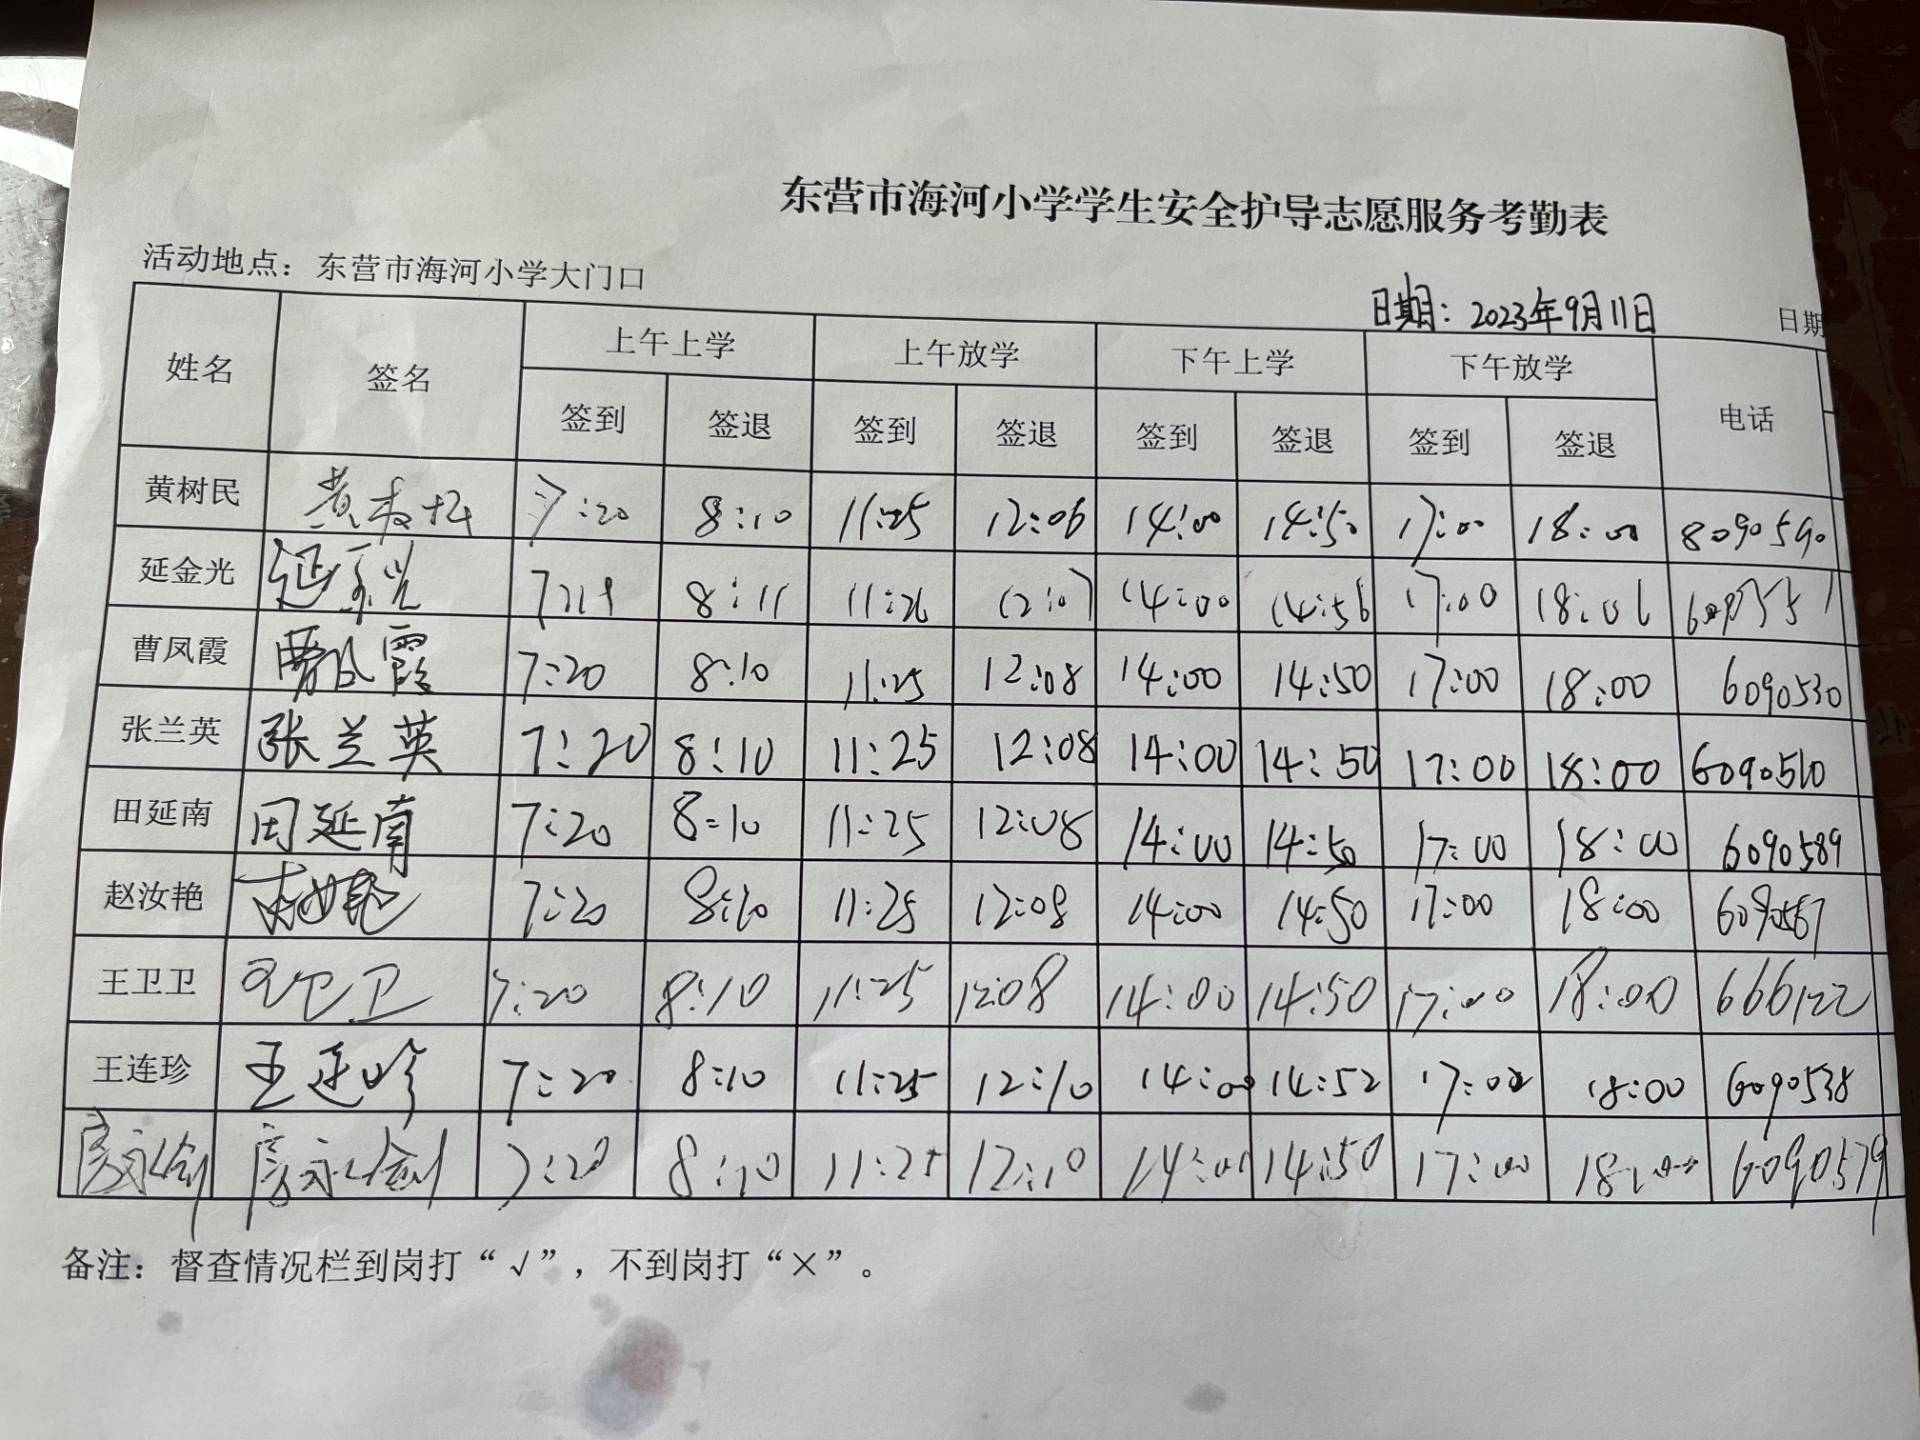 东营市海河小学学生安全护导志愿服务考勤表
活动地点：东营市海河小学大门口
日期：2023年9月11日 日期
姓名 签名 上午上学 上午放学 下午上学 下午放学 电话
签到 签退 签到 签退 签到 签退 签到 签退
黄树民 7:20 8:10 11:25 12:06 14:00 14:50 17:00 18:00 8090590
延金光 延金光 8:11 11:26 12:07 14:00 14:56 17:00 18:06
曹凤霞 曹凤霞 7:20 8:10 11:25 12:08 14:00 14:50 17:00 18:00 6090530
张兰英 张兰英 7:20 8:10 11:25 12:08 14:00 14:50 17:00 18:00 6090510
田延南 田延南 7:20 8:10 11:25 12:08 14:00 14:50 17:00 18:00 6090589
赵汝艳 7:20 8:10 11:25 12:08 14:00 14:50 17:00 18:00 6090567
王卫卫 王卫卫 7:20 8:10 11:25 12:08 14:00 14:50 17:00 18:00 666122
王连珍 王连珍 7:20 8:10 11:25 12:10 14:00 14:52 17:02 18:00 6090538
7:20 8:10 11:25 12:10 14:00 14:50 17:00 18:00 6090579
备注：督查情况栏到岗打“√”，不到岗打“×”。